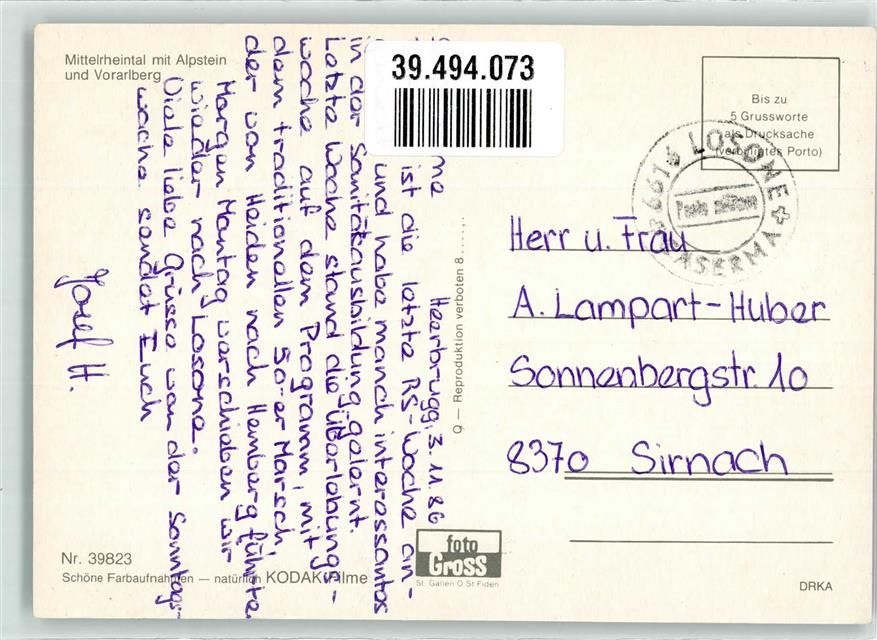 Mittelrheintal mit Alpstein
und Vorarlberg
39.494.073
Bis zu
5 Grussworte
als Drucksache
(verbilligtes Porto)
6616 LOSONE
CASERMA
Heerbrugg, 3.11.86
ist die letzte RS-Woche an-
und habe manch interessantes
in der Sanitätsausbildung gelernt.
Letzte Woche stand die Überlebungs-
woche auf dem Programm, mit
dem traditionellen 50-er Marsch,
der von Heiden nach Hemberg führte.
Morgen Montag verschieben wir
wieder nach Losone.
Viele liebe Grüsse von der Sonntags-
wache sendet Euch
Josef H.
Q — Reproduktion verboten 8
Herr u. Frau
A. Lampart-Huber
Sonnenbergstr. 10
8370 Sirnach
foto
Gross
St. Gallen O St Fiden
Nr. 39823
Schöne Farbaufnahmen — natürlich KODAK Filme
DRKA